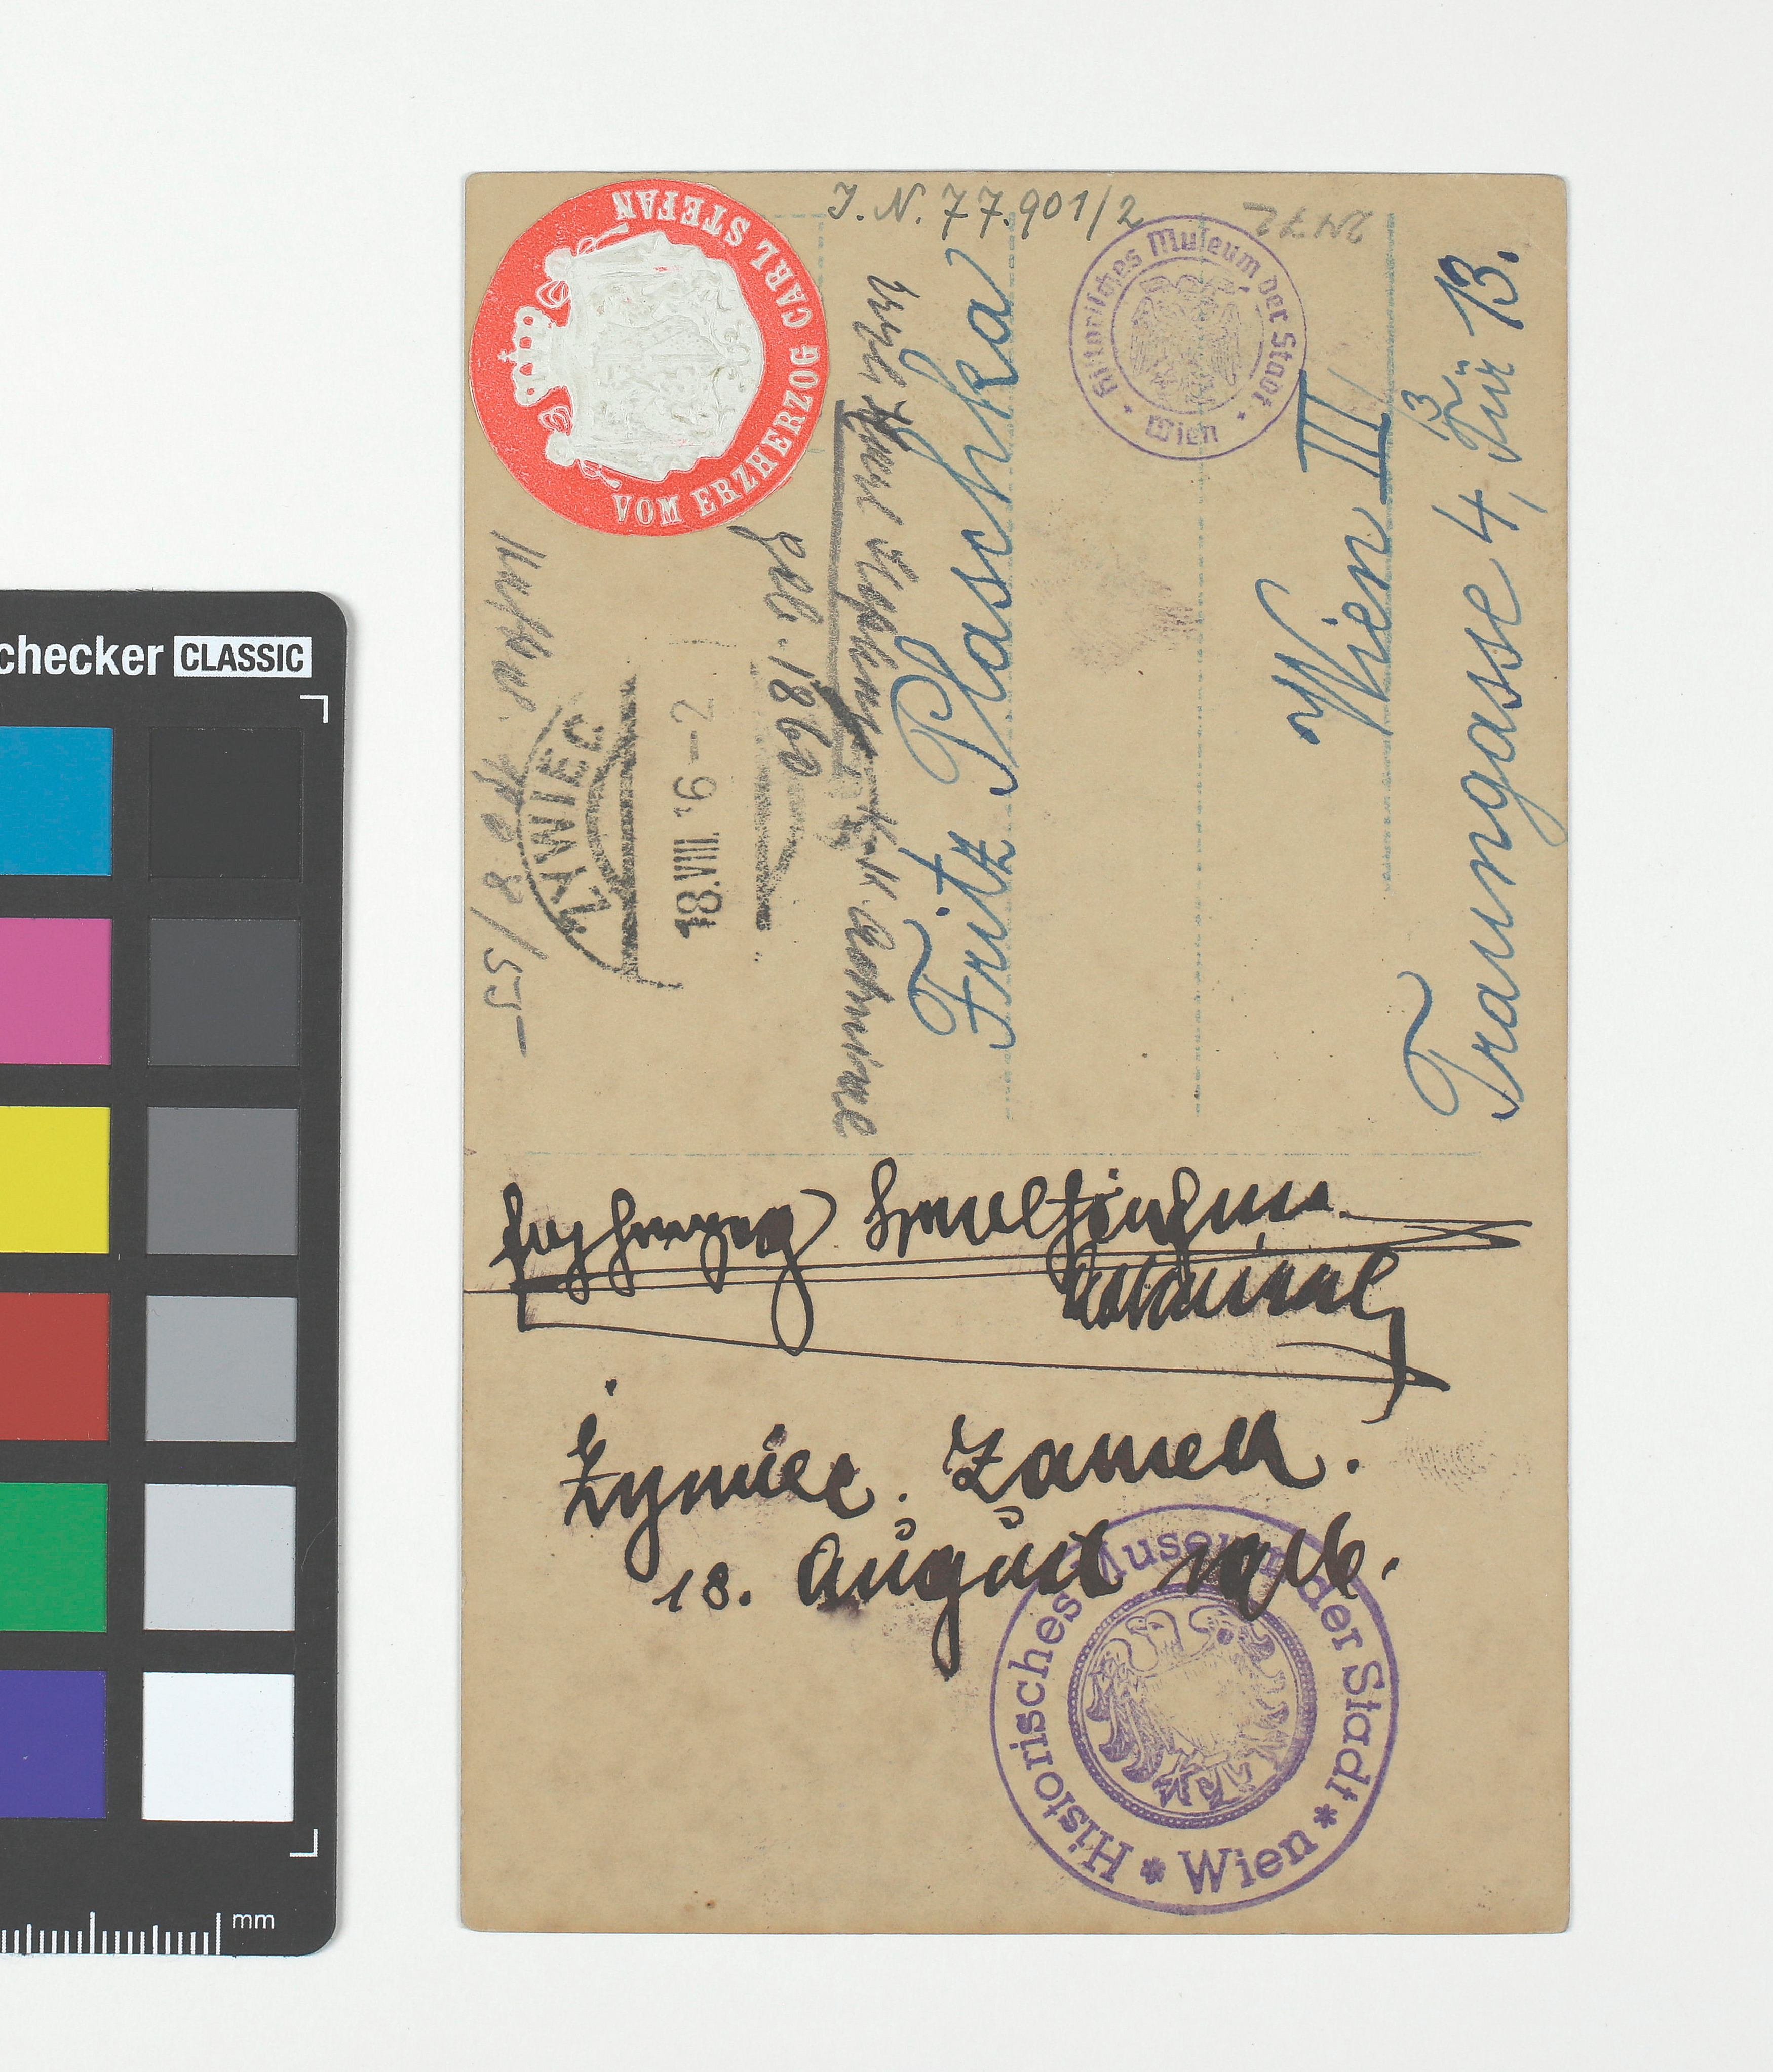 checker CLASSIC
mm
J. N. 77.901/2
2472
VOM ERZHERZOG CARL STEFAN
Historisches Museum der Stadt
Wien
geb. 1860
ZYWIEC
18.VIII.16-2
Fritz Plaschka
Wien III
3
Traungasse 4, Tür 13.
Erzherzog
Admiral
Żywiec. Zamek.
18. August 1916.
Historisches Museum der Stadt * Wien *